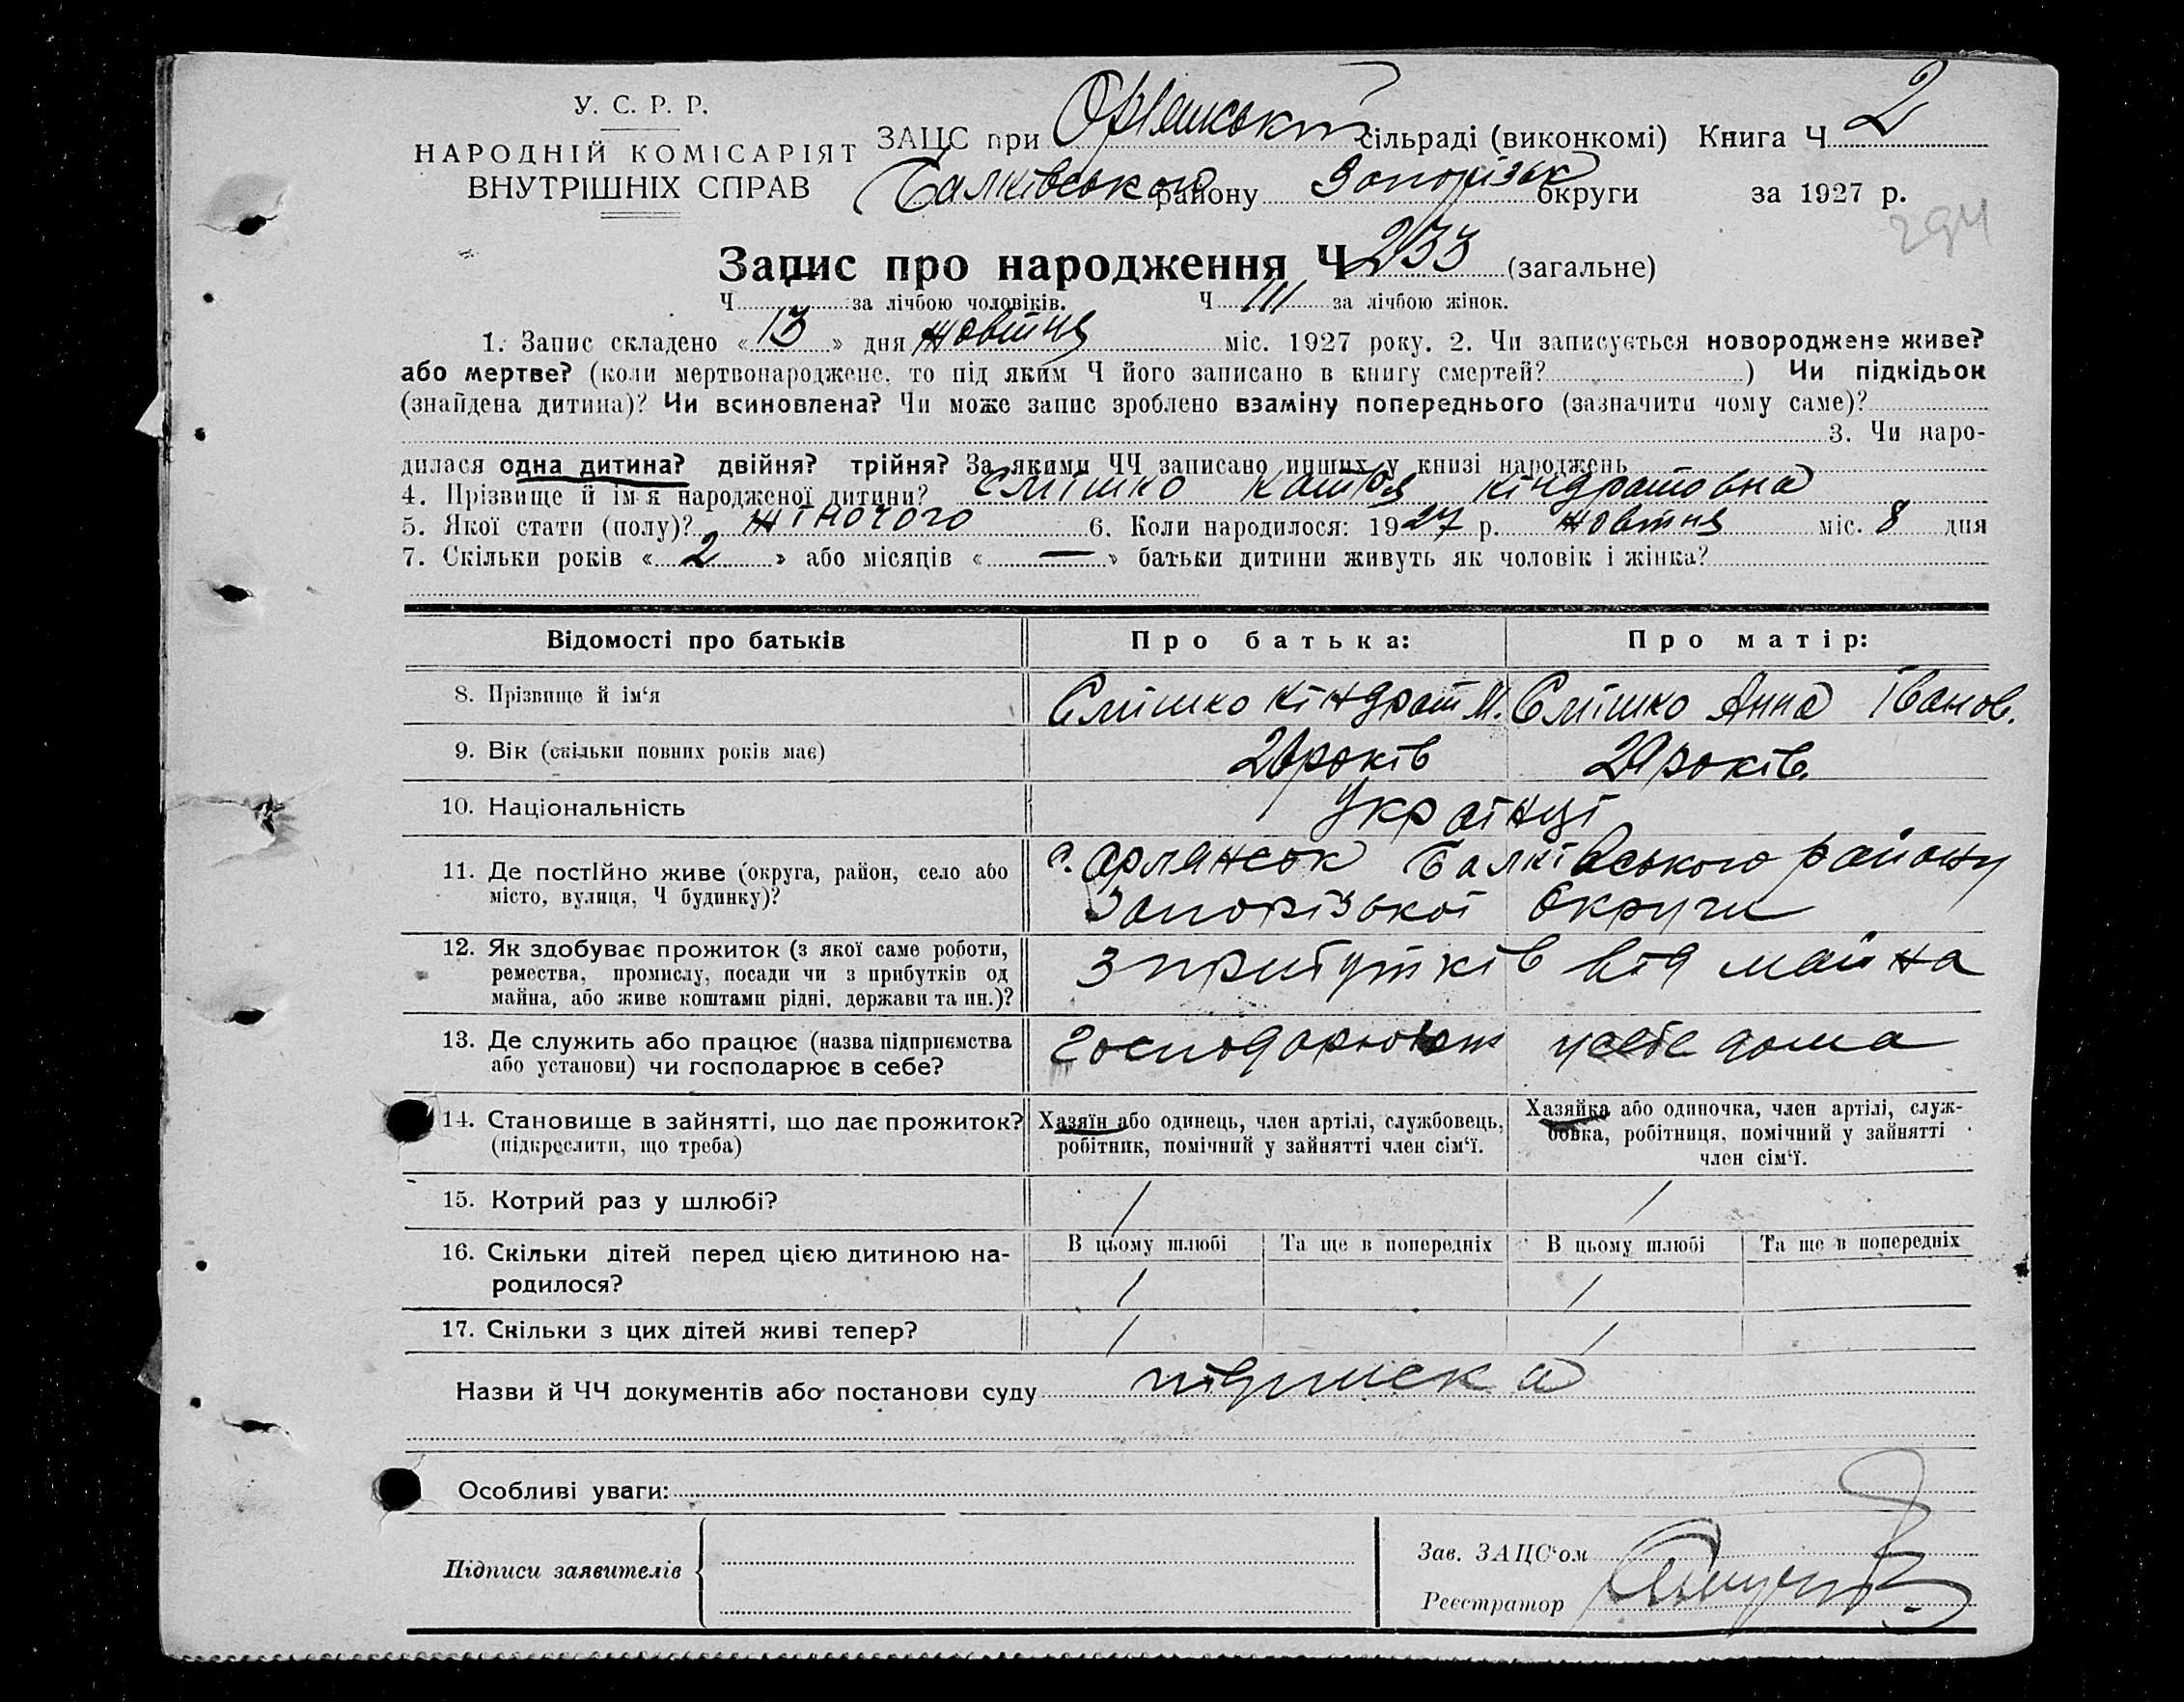 У. С. Р. Р.
НАРОДНІЙ КОМІСАРІЯТ
ВНУТРІШНІХ СПРАВ
ЗАЦС при Орлянській сільраді (виконкомі) Книга Ч 2
Балківського району Запорізьк округи за 1927 р.
294
Запис про народження Ч 233 (загальне)
Ч за лічбою чоловіків. Ч 111 за лічбою жінок.
1. Запис складено « 13 » дня жовтня міс. 1927 року. 2. Чи записується новороджене живе?
або мертве? (коли мертвонароджене, то під яким Ч його записано в книгу смертей? ) Чи підкідьок
(знайдена дитина)? Чи всиновлена? Чи може запис зроблено взаміну попереднього (зазначити чому саме)?
3. Чи наро-
дилася одна дитина? двійня? трійня? За якими ЧЧ записано инших у книзі народжень
4. Прізвище й ім‘я народженої дитини? Єлішко Катря Кіндратовна
5. Якої стати (полу)? жіночого 6. Коли народилося: 1927 р. жовтня міс. 8 дня
7. Скільки років « 2 » або місяців « — » батьки дитини живуть як чоловік і жінка?
Відомості про батьків Про батька: Про матір:
8. Прізвище й ім‘я Єлішко Кіндрат М. Єлішко Анна Іванов.
9. Вік (скільки повних років має) років років
10. Національність Українці
11. Де постійно живе (округа, район, село або с. Орлянськ Балківського району
місто, вулиця, Ч будинку)? Запорізької Округи
12. Як здобуває прожиток (з якої саме роботи,
ремества, промислу, посади чи з прибутків од з прибутків від майна
майна, або живе коштами рідні, держави та ин.)?
13. Де служить або працює (назва підприємства господарюють у себе дома
або установи) чи господарює в себе?
14. Становище в зайнятті, що дає прожиток?
(підкреслити, що треба)
Хазяїн або одинець, член артілі, службовець,
робітник, помічний у зайнятті член сім‘ї.
Хазяйка або одиночка, член артілі, служ-
бовка, робітниця, помічний у зайнятті
член сім‘ї.
15. Котрий раз у шлюбі? 1 1
16. Скільки дітей перед цією дитиною на-
родилося?
В цьому шлюбі Та ще в попередніх В цьому шлюбі Та ще в попередніх
1 1
17. Скільки з цих дітей живі тепер? 1 1
Назви й ЧЧ документів або постанови суду підписка
Особливі уваги:
Підписи заявителів
Зав. ЗАЦС‘ом
Реєстратор